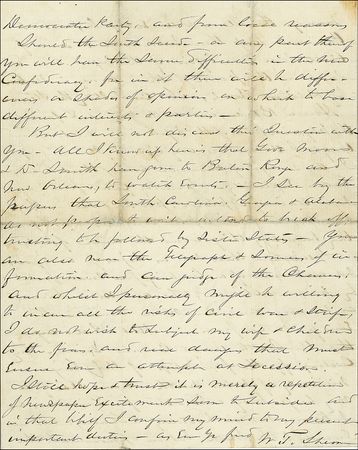 Democratic Party, and from local reasons
Should the South Secede - or any part thereof
you will have the Same difficulties in the New
Confederacy, for in it there will be differ-
ences or Shades of opinion on which to base
different interests & parties -
But I will not discuss this Question with
you - All I know up here is that Gov Moore
& Dr Smith have gone to Baton Rouge and
New Orleans, to watch events - I See by the
papers that South Carolina Georgia & Alabama
at break off
trusting to be followed by Sister States - You
are also near the Telegraph & Sources of in
formation and can judge of the Chances,
and whilst I personally might be willing
to incur all the risks of civil War & Strife,
I do not wish to Subject my wife & children
to the fears and real dangers that must
Ensue Even an attempt at Secession.
I Still hope & trust it is merely a repetition
of Newspaper Excitement Soon to Subside and
in that belief I confine my mind to my present
important duties - as Ever Yr frd W. T. Sherm